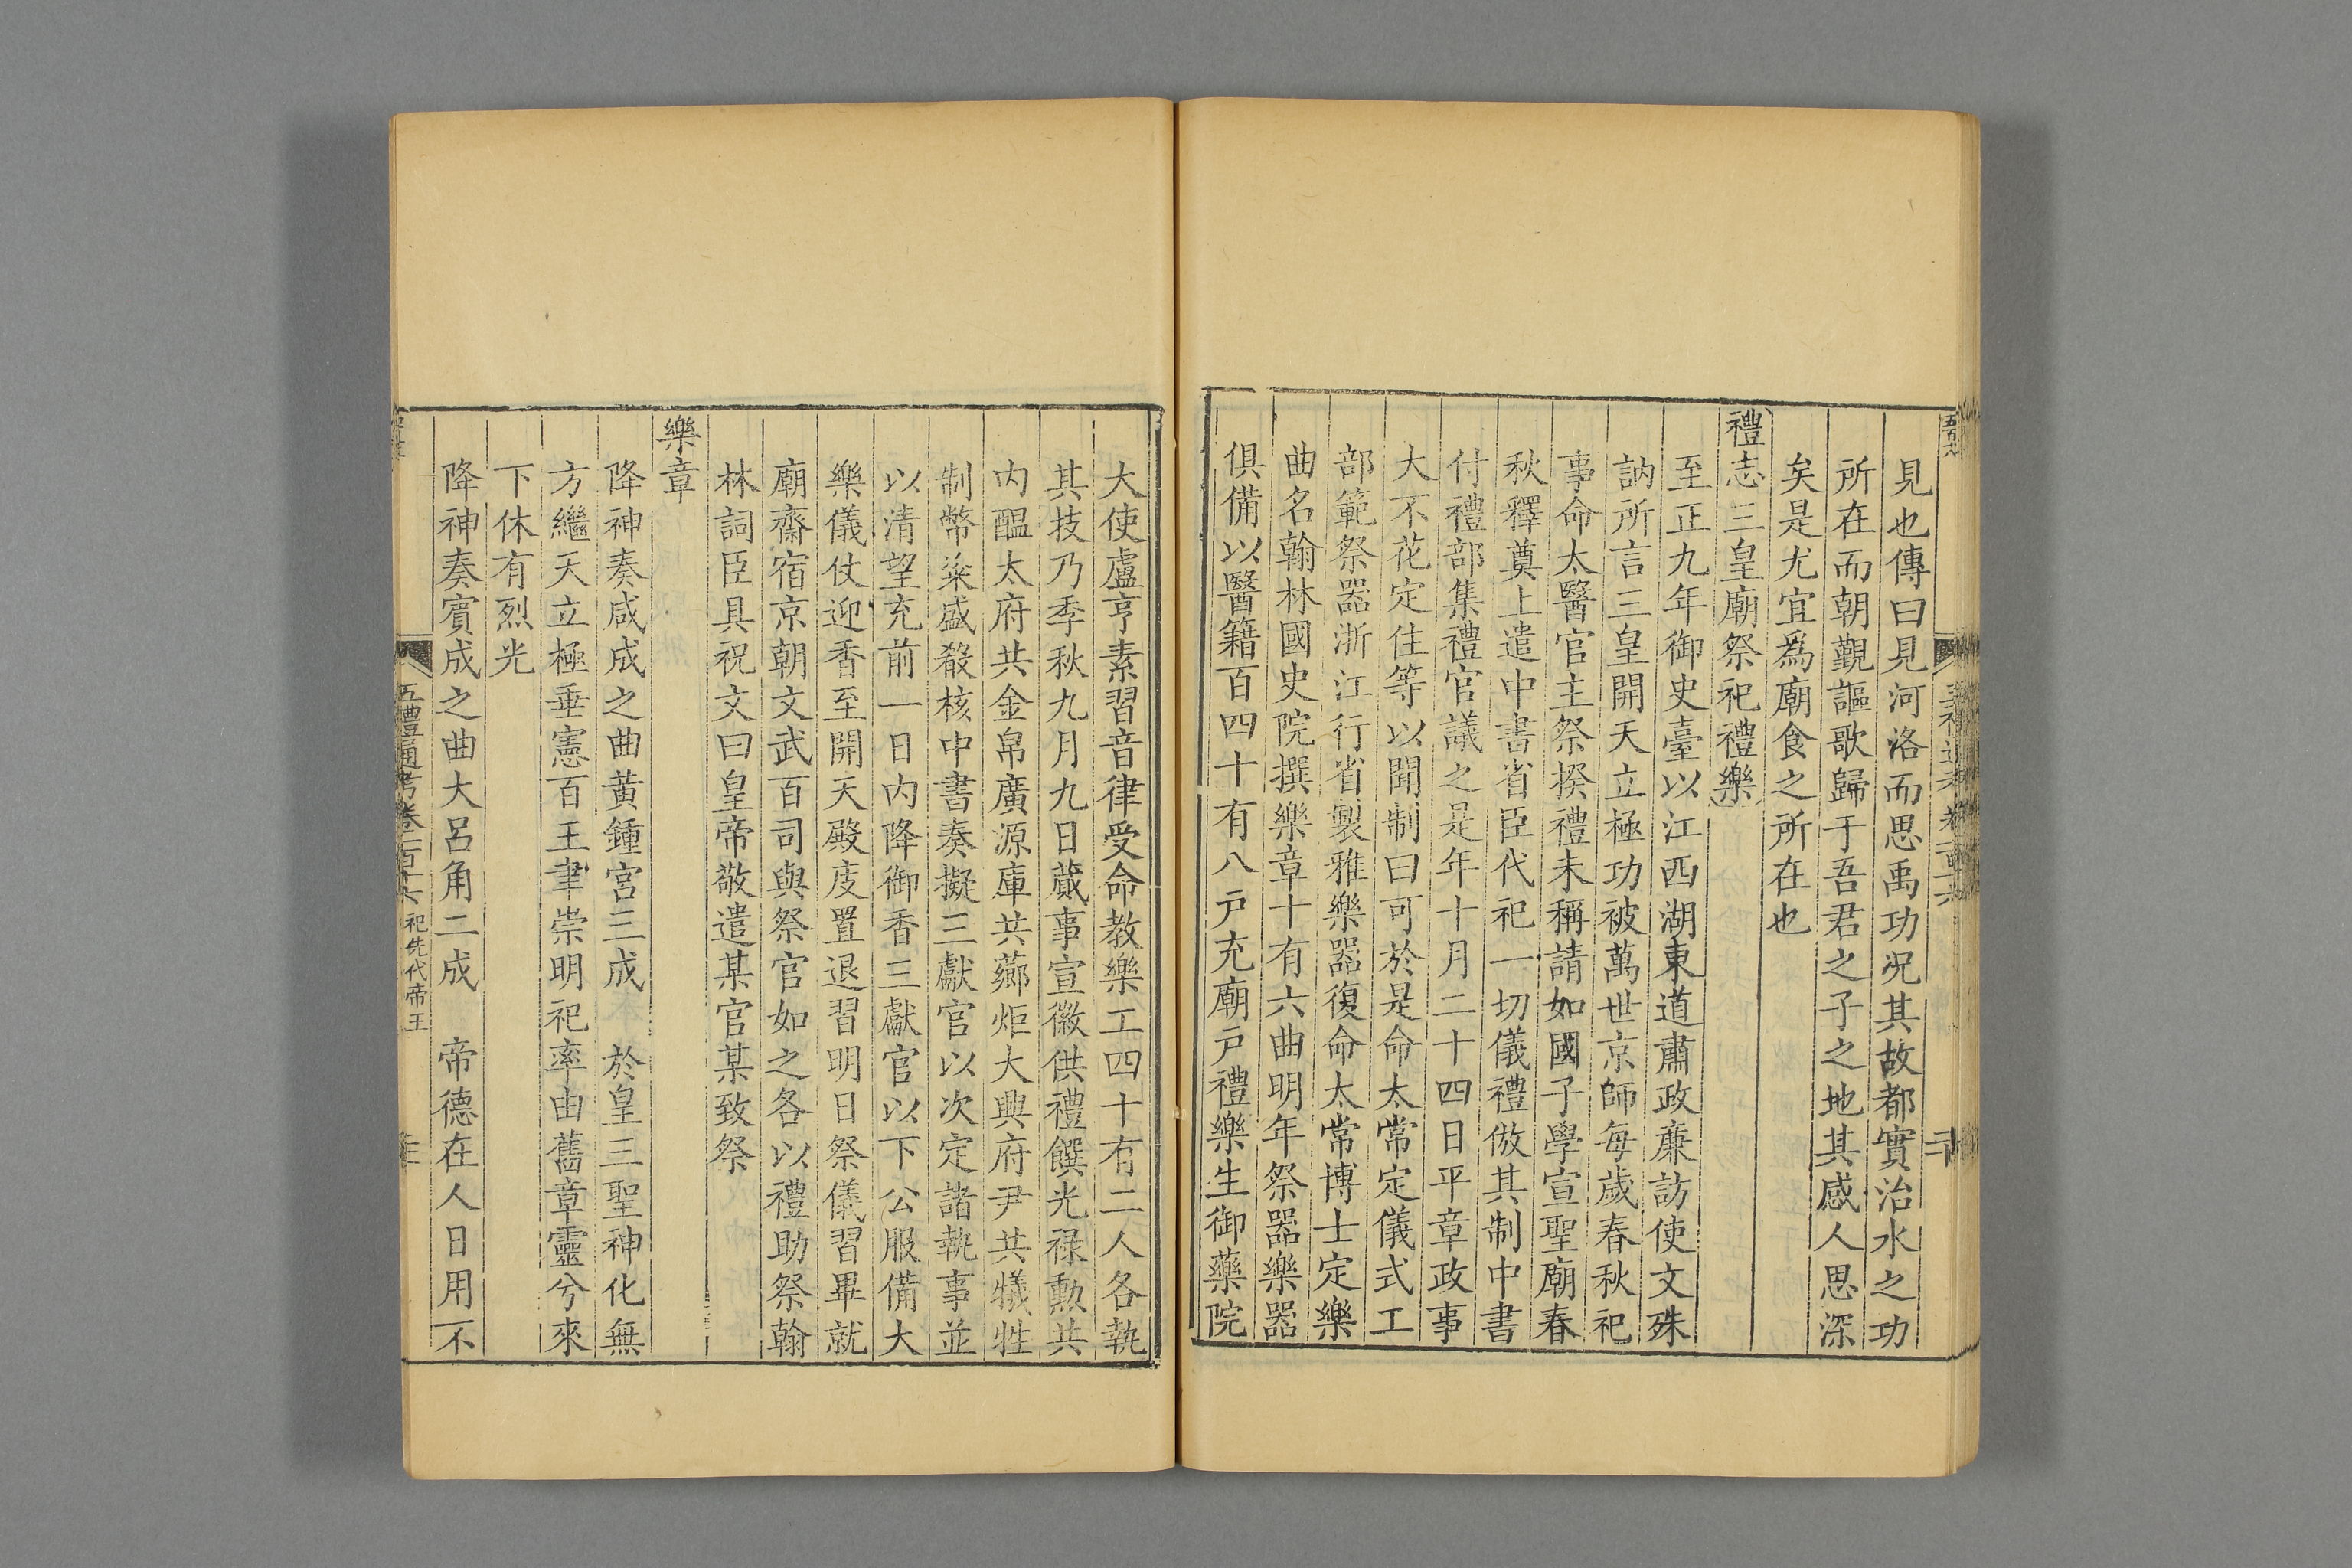 見也傳曰見河洛而思禹功况其故都實治水之功
所在而朝覲謳歌歸于吾君之子之地其感人思深
矣是尤宜爲廟食之所在也
禮志三皇廟祭祀禮樂
至正九年御史臺以江西湖東道肅政廉訪使文殊
訥所言三皇開天立極功被萬世京師每歲春秋祀
事命太醫官主祭揆禮未稱請如國子學宣聖廟春
秋釋奠上遣中書省臣代祀一切儀禮倣其制中書
付禮部集禮官議之是年十月二十四日平章政事
大不花定住等以聞制曰可於是命太常定儀式工
部範祭器浙江行省製雅樂器復命太常博士定樂
曲名翰林國史院撰樂章十有六曲明年祭器樂器
俱備以醫籍百四十有八戸充廟戸禮樂生御藥院
大使盧亨素習音律受命教樂工四十有二人各執
其技乃季秋九月九日蕆事宣徽供禮饌光禄勲共
内醞太府共金帛廣源庫共薌炬大興府尹共犧牲
制幣粢盛殽核中書奏擬三獻官以次定諸執事並
以清望充前一日内降御香三獻官以下公服備大
樂儀仗迎香至開天殿庋置退習明日祭儀習畢就
廟齋宿京朝文武百司與祭官如之各以禮助祭翰
林詞臣具祝文曰皇帝敬遣某官某致祭
樂章
降神奏咸成之曲黃鍾宮三成　於皇三聖神化無
方繼天立極垂憲百王聿崇明祀率由舊章靈兮來
下休有烈光
降神奏賓成之曲大呂角二成　帝德在人日用不
五禮通考卷一百十六　祀先代帝王